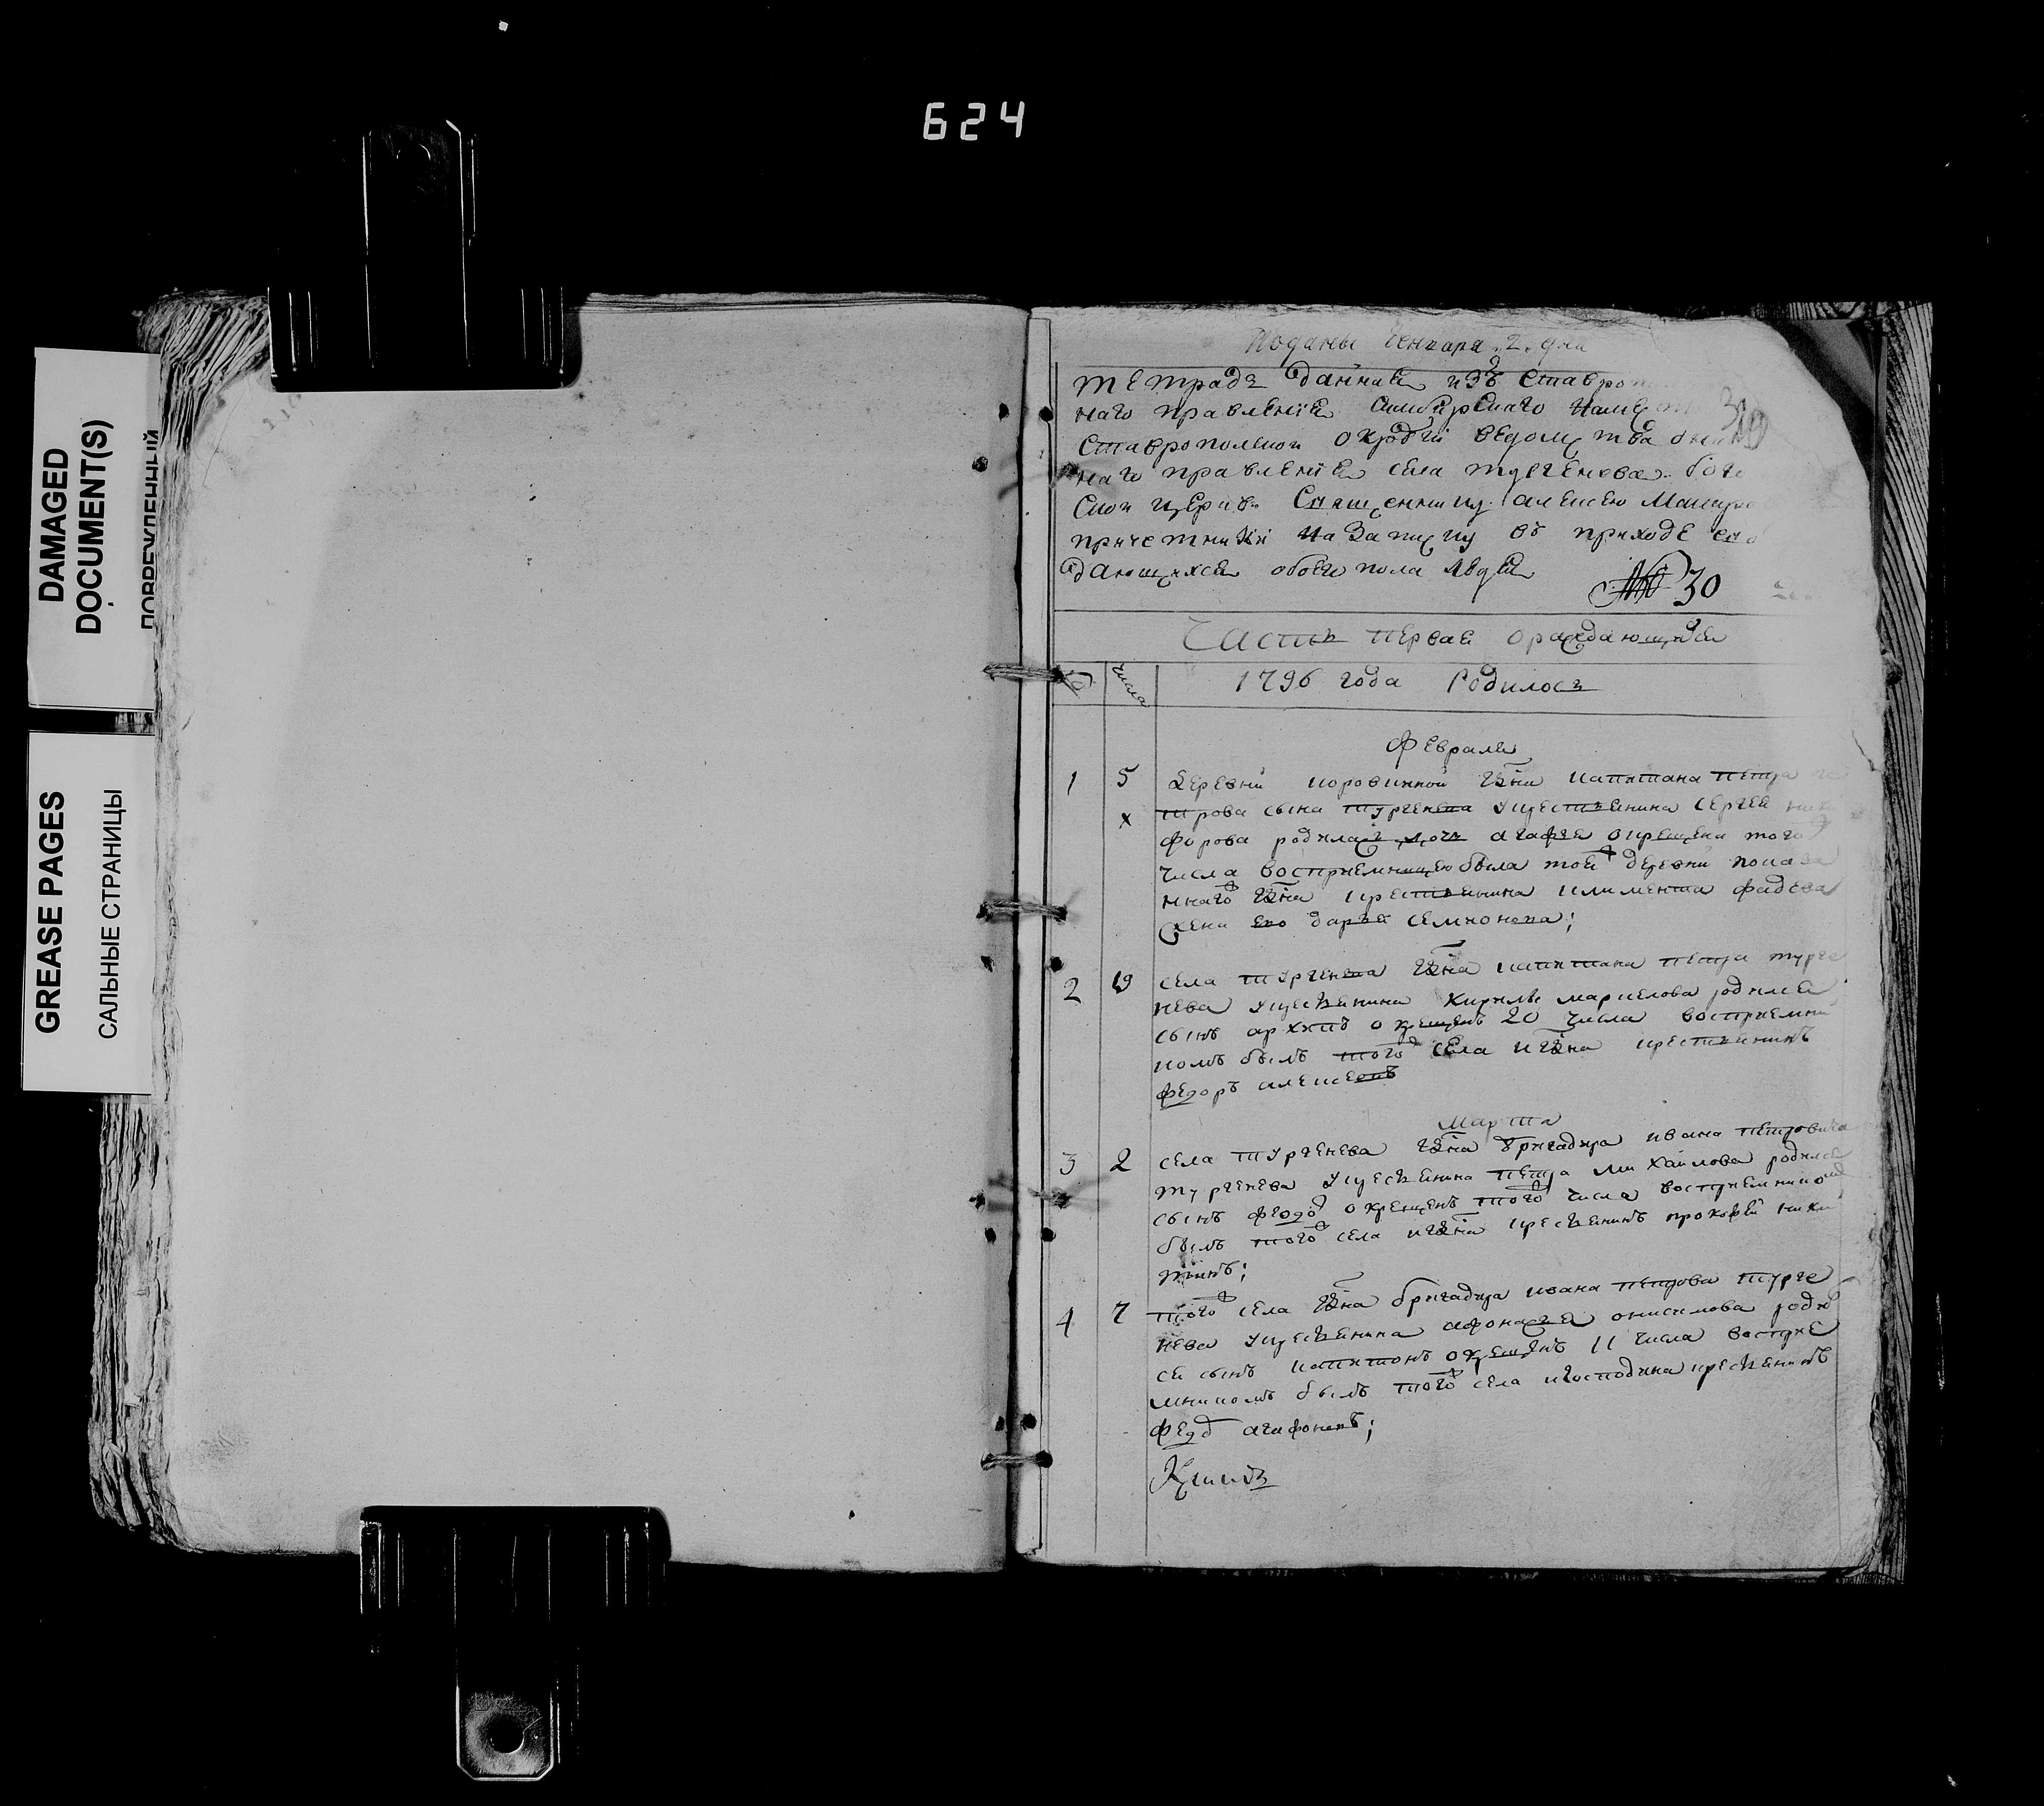 624
DAMAGED
DOCUMENT(S)
ПОВРЕЖДЕННЫЙ
GREASE PAGES
САЛЬНЫЕ СТРАНИЦЫ
Поданы Генваря 2. дня
тетрадь данная изъ Ставропо
наго правления Симбирскаго Намест
Ставрополской округи ведомства духов
наго правления села тургенева бого
ской церкви Священнику алексею
причетники на Записку въ приходе
дающихся обоего пола людей
№ 30
Часть первая о раждающихся
№ числа 1796 года Родилось
Февраля
1 5 Деревни коровинной гдна капитана петра пе
трова сына тургенева у крестьянина сергея ники
форова родилась дочь агафья окрещена того
числа восприемницею была той деревни показа
ннаго гдна крестьянина климента фадеева
жена ево дарья семионова;
2 19 села тургенева гдна капитана петра турге
нева у крестьянина кирилы маркелова родился
сынъ архипъ окрещенъ 20 числа восприемни
комъ былъ того села и гдна крестьянинъ
федоръ алексеевъ
Марта
3 2 села тургенева гдна бригадира ивана петровича
тургенева у крестьянина петра михайлова родился
сынъ федо окрещенъ того числа восприемникомъ
былъ того села и гдна крестьянинъ прокофей ники
тинъ;
4 7 того села гдна бригадира ивана петрова турге
нева у крестьянина афонасья онисимова роди
ся сынъ капитонъ окрещенъ 11 числа восприе
мникомъ былъ того села и господина крестьянинъ
федо агафоновъ;